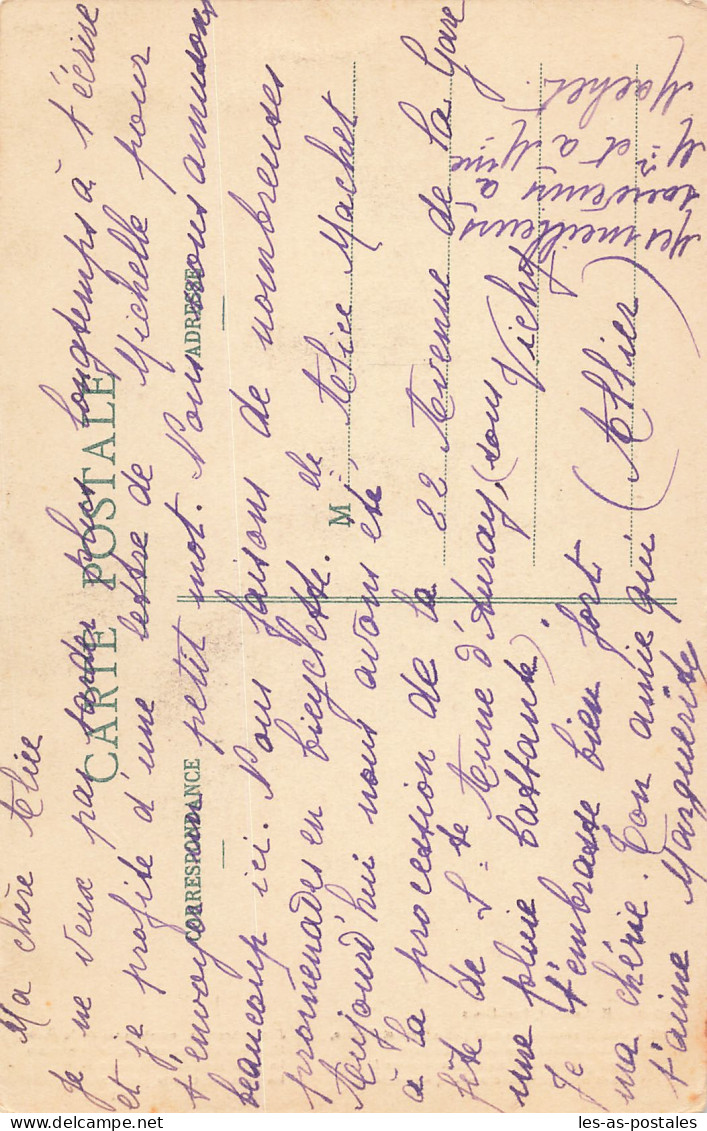 CARTE POSTALE
CORRESPONDANCE
ADRESSE
Ma chère Alice
Je ne veux pas tarder plus longtemps à t'écrire
et je profite d'une lettre de Michelle pour
t'envoyer un petit mot. Nous nous amusons
beaucoup ici. Nous faisons de nombreuses
promenades en bicyclette.
Aujourd'hui nous avons été
à la procession de la
fête de Ste Anne d'Auray, (sous
une pluie battante).
Je t'embrasse bien fort
ma chérie. Ton amie qui
t'aime Marguerite
M elle Alice Machet
22 Avenue de la Gare
Vichy
(Allier)
Mes meilleurs
souvenirs à
Mr et à Mme
Machet.
les-as-postales